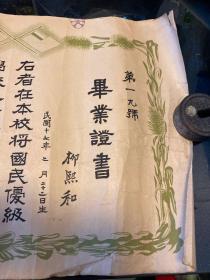 第一九號
畢業證書
柳熙和
民國十七年二月二十二日生
右者在本校將國民優級